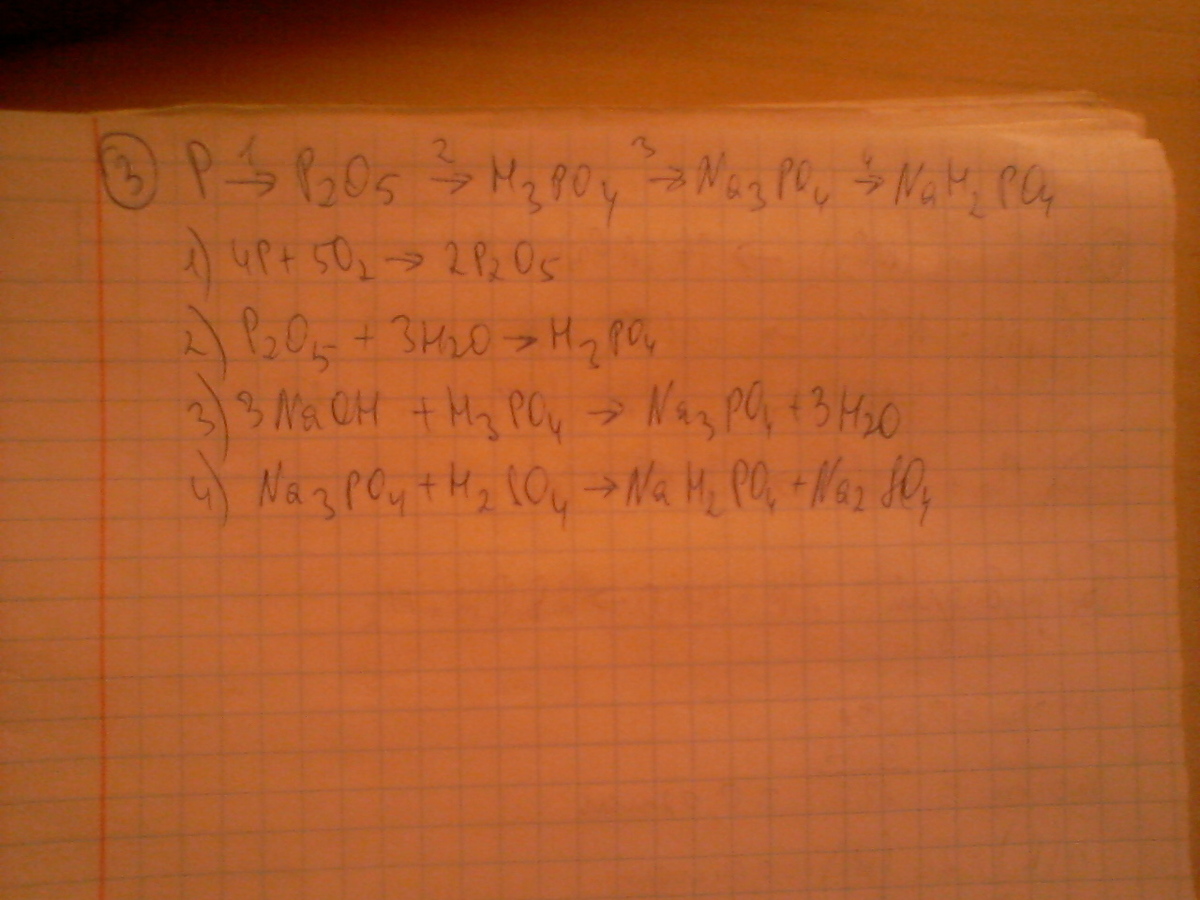 ③ P →¹ P₂O₅ →² H₃PO₄ →³ Na₃PO₄ →⁴ NaH₂PO₄
1) 4P + 5O₂ → 2P₂O₅
2) P₂O₅ + 3H₂O → H₃PO₄
3) 3NaOH + H₃PO₄ → Na₃PO₄ + 3H₂O
4) Na₃PO₄ + H₂SO₄ → NaH₂PO₄ + Na₂SO₄